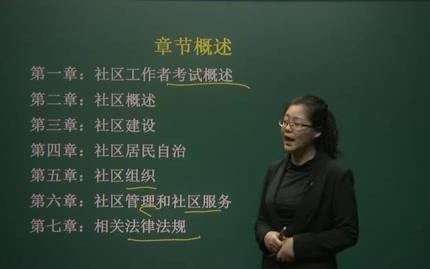 章节概述
第一章：社区工作者考试概述
第二章：社区概述
第三章：社区建设
第四章：社区居民自治
第五章：社区组织
第六章：社区管理和社区服务
第七章：相关法律法规